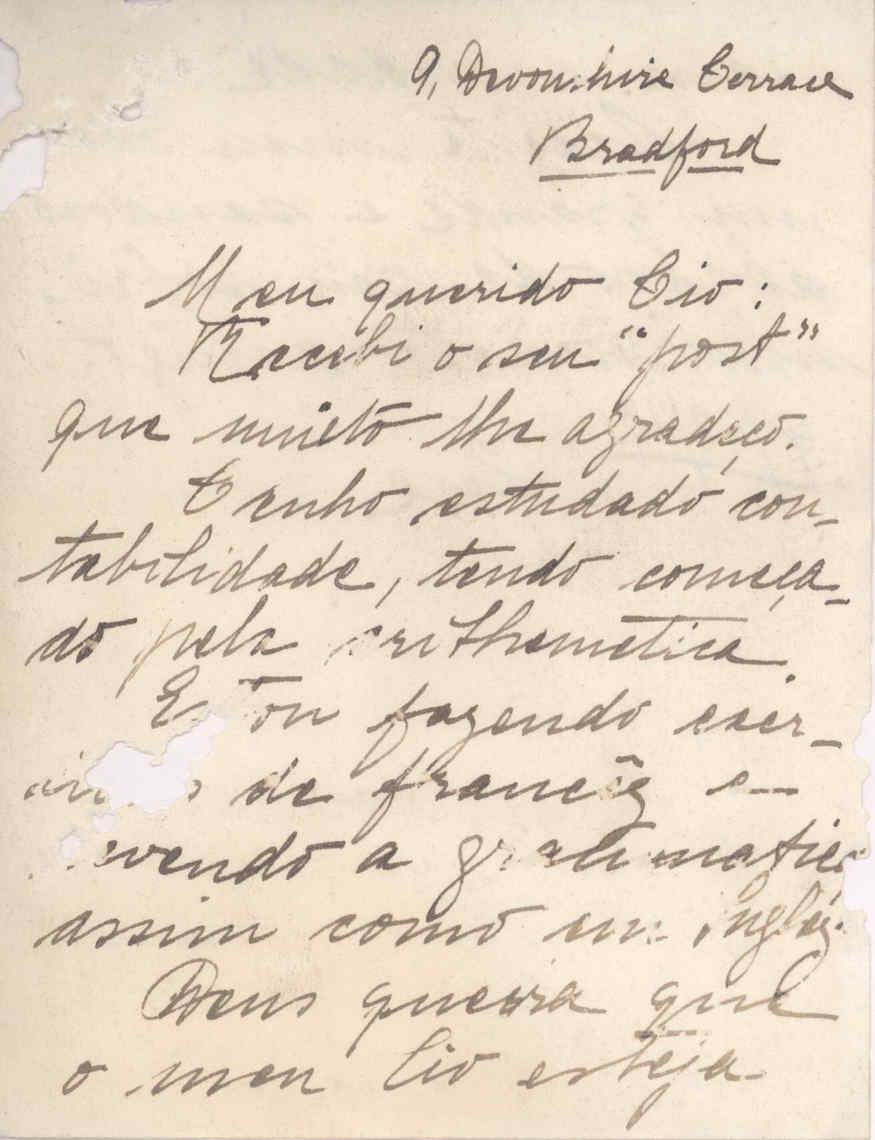 9, Devonshire Terrace
Bradford
Meu querido Tio:
Recebi o seu "post"
que muito lhe agradeço.
Tenho estudado con-
tabilidade, tendo começa-
do pela arithemetica
Estou fazendo exer-
de francêz e
vendo a grammatica
assim como em inglêz.
Deus queira que
o meu Tio estêja